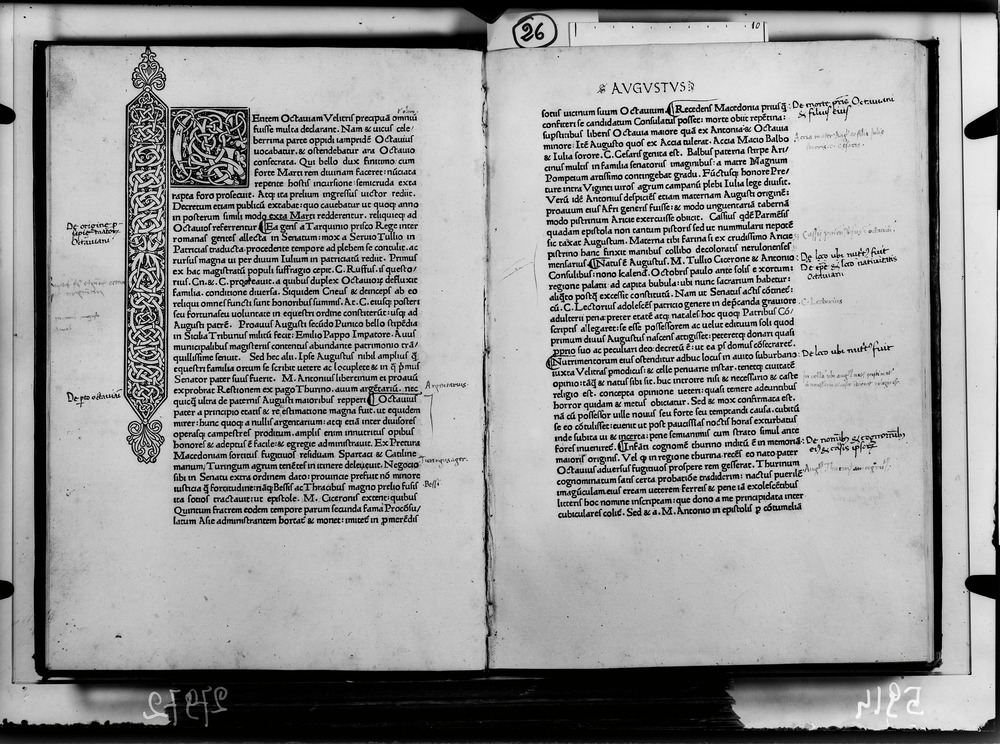 26
10
Entem Octauiam Velitris precipuã omniũ
fuisse multa declarant. Nam & uicus cele/
berrima parte oppidi iampridẽ Octauius
uocabatur. & ostendebatur ara Octauio
consecrata. Qui bello dux finitimo cum
forte Marti rem diuinam faceret: nũciata
repente hostis incursione: semicruda exta
rapta foro prosecuit. Atq; ita prelium ingressus uictor rediit.
Decretum etiam publicũ extabat: quo cauebatur ut quoq; anno
in posterum simili modo exta Marti redderentur. reliquieq; ad
Octauios referrentur. Ea gens a Tarquinio prisco Rege inter
romanas gentes allecta in Senatum: mox a Seruio Tullio in
Patricias traducta: procedente tempore ad plebem se contulit. ac
rursus magna ui per diuum Iulium in patriciatũ rediit. Primus
ex hac magistratũ populi suffragio cepit. C. Ruffus. is questo/
rius. Cn. & C. procreauit. a quibus duplex Octauioꝝ defluxit
familia. conditione diuersa. Siquidem Gneus & deinceps ab eo
reliqui omnes functi sunt honoribus summis. At. C. eiusq; posteri
seu fortuna seu uoluntate in equestri ordine constiterũt: usq; ad
Augusti patrẽ. Proauus Augusti secũdo Punico bello stipẽdia
in Sicilia Tribunus militũ fecit: Emilio Pappo Impatore. Auus
municipalibus magisteriis contentus abundante patrimonio trã/
quillissime senuit. Sed hec alii. Ipse Augustus nihil amplius q̃
equestri familia ortum se scribit uetere ac locuplete & in q̃ pͥmus
Senator pater suus fuerit. M. Antonius libertinum ei proauũ
exprobrat Restionem ex pago Thurino. auum argẽtariũ. nec
quicq̃ ultra de paternis Augusti maioribus repperi. Octauius
pater a principio etatis & re & existimatione magna fuit. ut equidem
mirer: hunc quoq; a nullis argentarium: atq; etiã inter diuisores
operasq; campestres proditum. amplis enim innutritus opibus
honores & adeptus ẽ facile: & egregie administrauit. Ex Pretura
Macedoniam sortitus fugitiuos residuam Spartaci & Catiline
manum, Turingum agrum tenẽtes in itinere deleuit. Negocio
sibi in Senatu extra ordinem dato: prouincie prefuit nõ minore
iusticia q̃ fortitudine: nãq; Bessis ac Thracibus magno prelio fusis
ita socios tractauit: ut epistole. M. Ciceronis extent: quibus
Quintum fratrem eodem tempore parum secunda fama Procõsu/
latum Asie administrantem hortat̃ & monet: imitet̃ in pͥmerẽdis
De pr̃e octauii
Argentarius.
Turingus ager.
Bessi.
AVGVSTVS
sotiis uicinum suum Octauium. Recedens Macedonia prius q̃
confiteri se candidatum Consulatus posset: morte obiit repẽtina:
supstitibus liberis Octauia maiore quã ex Antonia & Octauia
minore: Itẽ Augusto quos ex Accia tulerat. Accia Macio Balbo
& Iulia sorore. C. Cesaris genita est. Balbus paterna stirpe Ari/
cinus multis in familia senatoriis imaginibus: a matre Magnum
Pompeium artissimo contingebat gradu. Fũctusq; honore Pre/
ture intra Viginti uiros agrum campanũ plebi Iulia lege diuisit.
Verũ idẽ Antonius despiciẽs etiam maternam Augusti originẽ:
proauum eius Afri generis fuisse: & modo unguentariã tabernã
modo pistrinum Aricie exercuisse obiicit. Cassius qdẽ Parmẽsis
quadam epistola non tantum pistoris sed ut nummularii nepotẽ
sic taxat Augustum. Materna tibi farina: si ex crudissimo Aricie
pistrino hanc finxit manibus collibo decoloratis nerulonensis
mensarius. Natus ẽ Augustus. M. Tullio Cicerone & Antonio
Consulibus: nono kalend. Octobris paulo ante solis exortum:
regione palatii ad capita bubula: ubi nunc sacrarium habetur:
aliq̃to postq̃ excessit constitutũ. Nam ut Senatus actis cõtinet̃:
cũ. C. Lectorius adolescẽs patricio genere in depcanda grauiore
adulterii pena preter etatẽ atq; natales hoc quoq; Patribus Cõ/
scriptis allegaret: se esse possessorem ac uelut edituum soli quod
primum diuus Augustus nascens attigisset: peteretq; donari quasi
pprio suo ac peculiari deo: decretũ ẽ: ut ea ps domus cõsecraret̃.
Nutrimentorum eius ostenditur adhuc locus in auito suburbano
iuxta Velitras pmodicus: & celle penuarie instar. tenetq; uicinitatẽ
opinio: tãq̃ & natus ibi sit. huc introire nisi & necessario & caste
religio est. concepta opinione ueteri: quasi temere adeuntibus
horror quidam & metus obiiciatur. Sed & mox confirmata est.
nã cũ possessor uille nouus seu forte seu temptandi causa. cubitũ
se eo cõtulisset: euenit ut post paucissimas noctis horas exturbatus
inde subita ui & incerta: pene semianimis cum strato simul ante
fores inueniret̃. Infãti cognomẽ thurino inditũ ẽ in memoriã
maioris originis. Vel q̃ in regione thurina recẽs eo nato pater
Octauius aduersus fugitiuos prospere rem gesserat. Thurinum
cognominatum satis certa probatiõe tradiderim: nactus puerilẽ
imagũculam eius eream ueterem ferreis & pene iã exolescẽtibus
litteris hoc nomine inscriptam: que dono a me principi data inter
cubiculares colit̃. Sed & a. M. Antonio in epistolis p cõtumeliã
De morte pr̃is Octauiani
& filiis eius
De loco ubi nutrit̃ fuit
De loco ubi nutrit̃ fuit
27972
5914